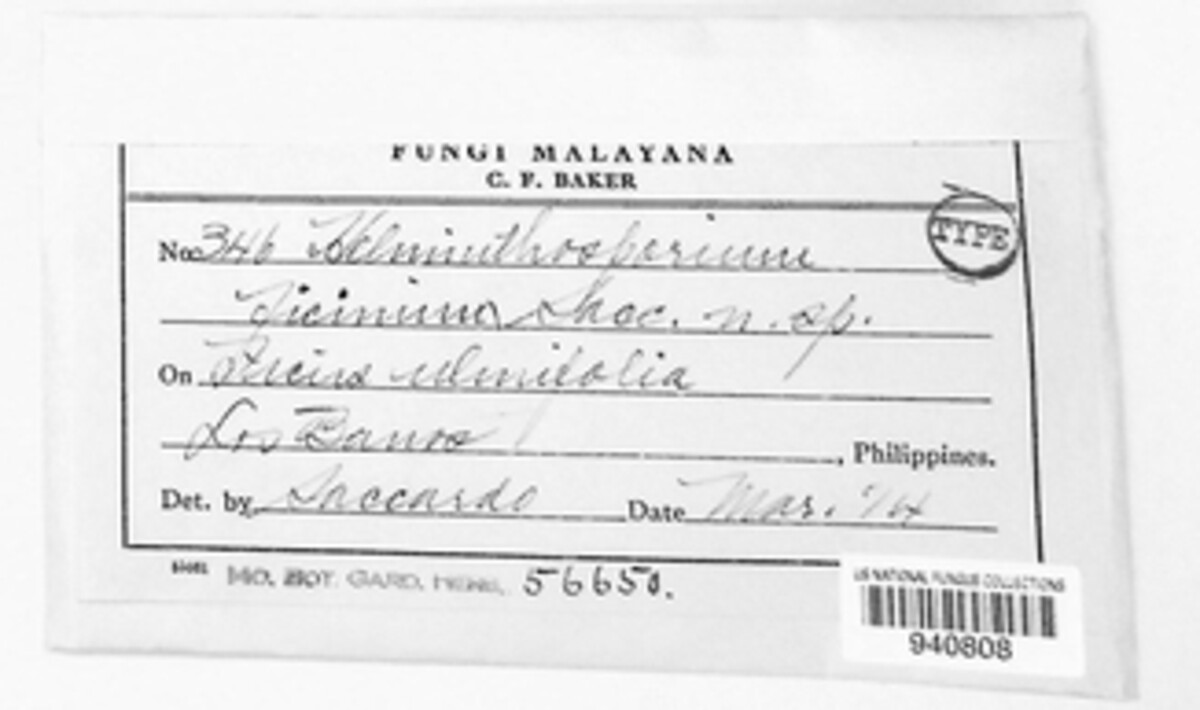 FUNGI MALAYANA
C. F. BAKER
TYPE
No. 346 Helminthosporium
ficinum Sacc. n. sp.
On Ficus ulmifolia
Los Banos, Philippines.
Det. by Saccardo Date Mar. '14
MO. BOT. GARD. HERB. 56650.
US NATIONAL FUNGUS COLLECTIONS
940808